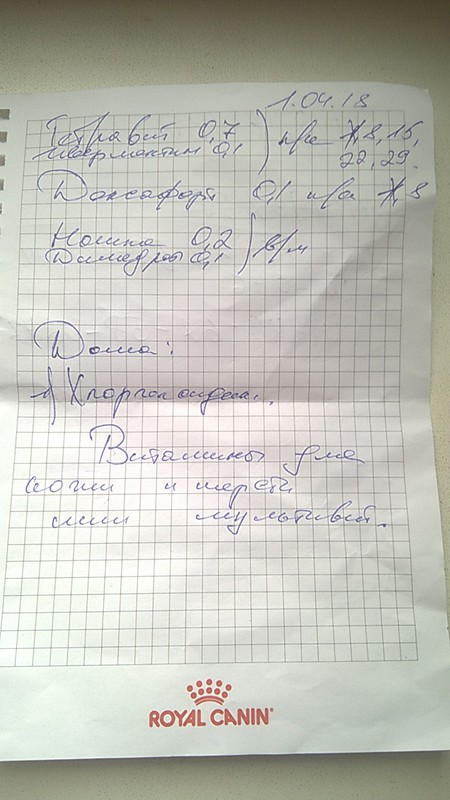 1.04.18
Тетравит 0,7
Ивермектин 0,1 п/к 1, 8, 15,
22, 29.
Дексафорт 0,1 п/к 1, 8
Ношпа 0,2
Димедрол 0,1 в/м
Дома:
1) Хлоргексидин.
Витамины для
кожи и шерсти
или мультивит.
ROYAL CANIN